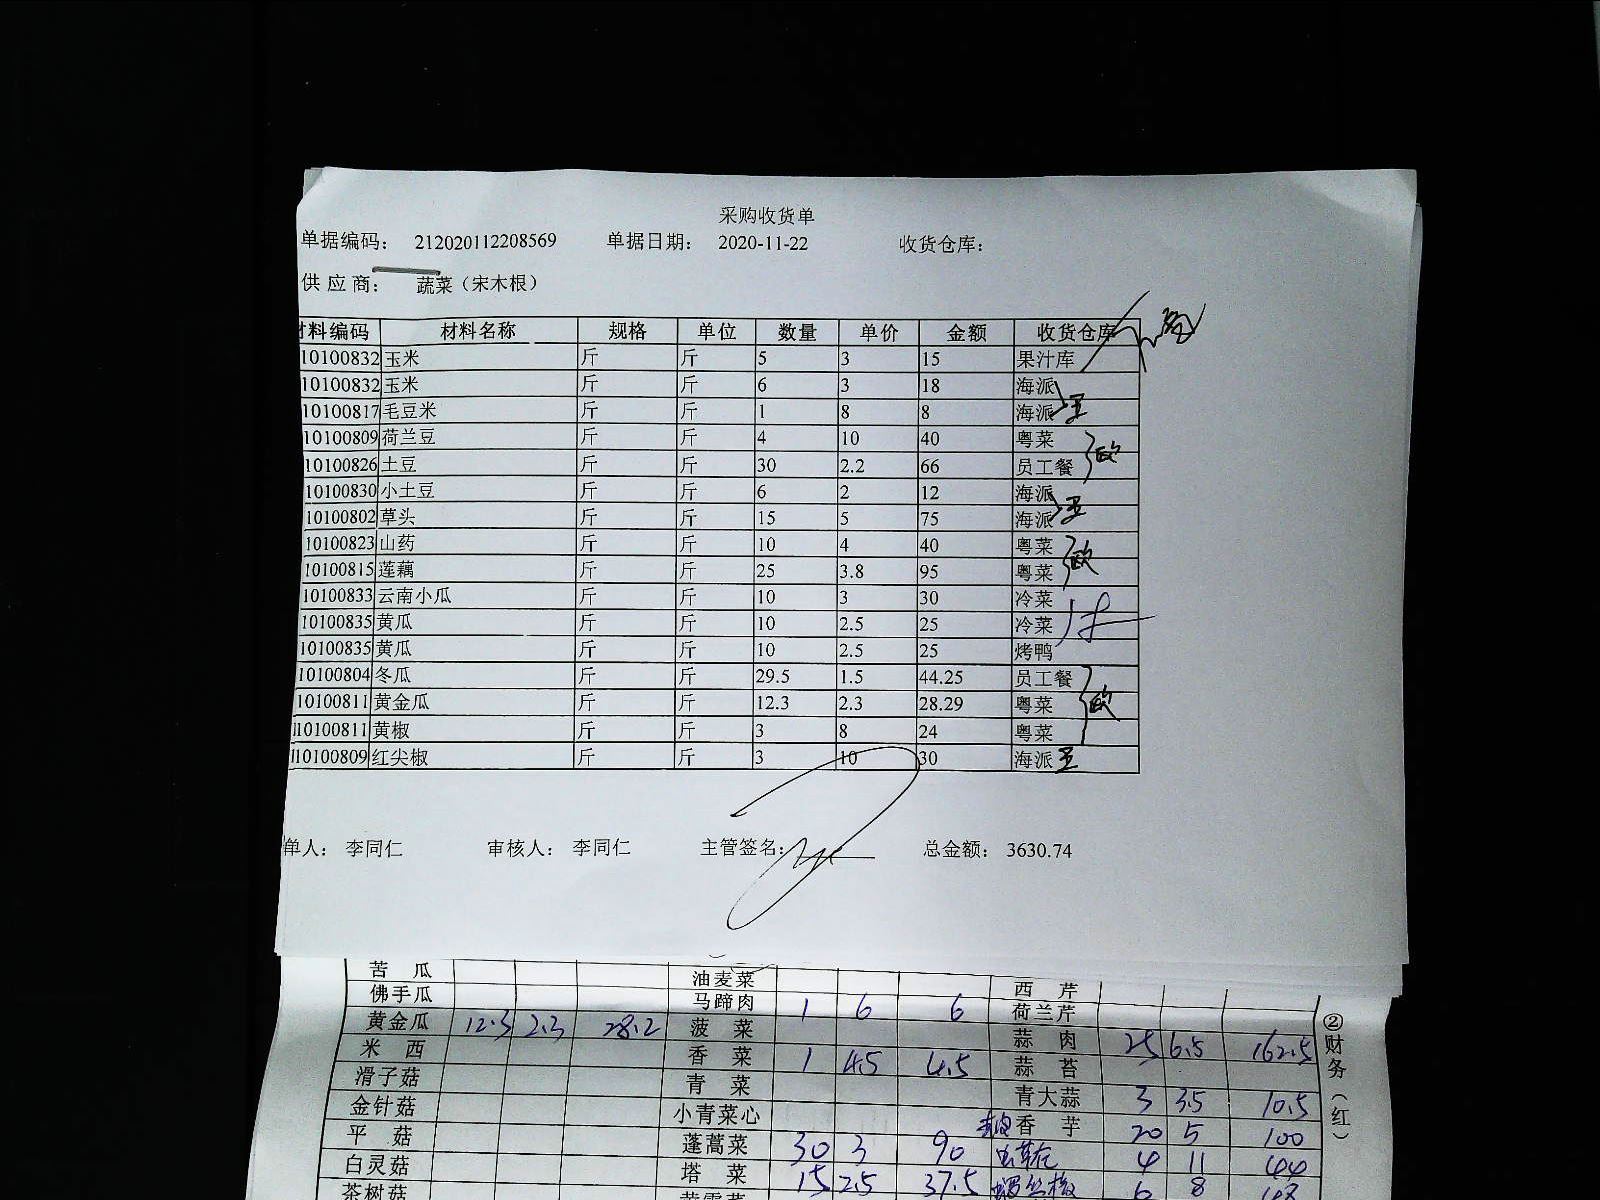 采购收货单
单据编码： 212020112208569 单据日期： 2020-11-22 收货仓库：
供 应 商： 蔬菜（宋木根）
材料编码 材料名称 规格 单位 数量 单价 金额 收货仓库
10100832 玉米 斤 斤 5 3 15 果汁库
10100832 玉米 斤 斤 6 3 18 海派
10100817 毛豆米 斤 斤 1 8 8 海派 王
10100809 荷兰豆 斤 斤 4 10 40 粤菜
10100826 土豆 斤 斤 30 2.2 66 员工餐 欧
10100830 小土豆 斤 斤 6 2 12 海派
10100802 草头 斤 斤 15 5 75 海派 王
10100823 山药 斤 斤 10 4 40 粤菜
10100815 莲藕 斤 斤 25 3.8 95 粤菜 欧
10100833 云南小瓜 斤 斤 10 3 30 冷菜
10100835 黄瓜 斤 斤 10 2.5 25 冷菜
10100835 黄瓜 斤 斤 10 2.5 25 烤鸭
10100804 冬瓜 斤 斤 29.5 1.5 44.25 员工餐
10100811 黄金瓜 斤 斤 12.3 2.3 28.29 粤菜 欧
10100811 黄椒 斤 斤 3 8 24 粤菜
10100809 红尖椒 斤 斤 3 10 30 海派 王
单人： 李同仁 审核人： 李同仁 主管签名： 总金额： 3630.74
苦 瓜 油麦菜 西 芹
佛手瓜 马蹄肉 1 6 6 荷兰芹
黄金瓜 12.3 2.3 28.2 菠 菜 蒜 肉 25 6.5 162.5
米 西 香 菜 1 4.5 4.5 蒜 苔
滑子菇 青 菜 青大蒜 3 3.5 10.5
金针菇 小青菜心 香 芋 20 5 100
平 菇 蓬蒿菜 30 3 90 虫草花 4 11 44
白灵菇 塔 菜 15 2.5 37.5 螺丝椒 6 8
茶树菇
②财务（红）